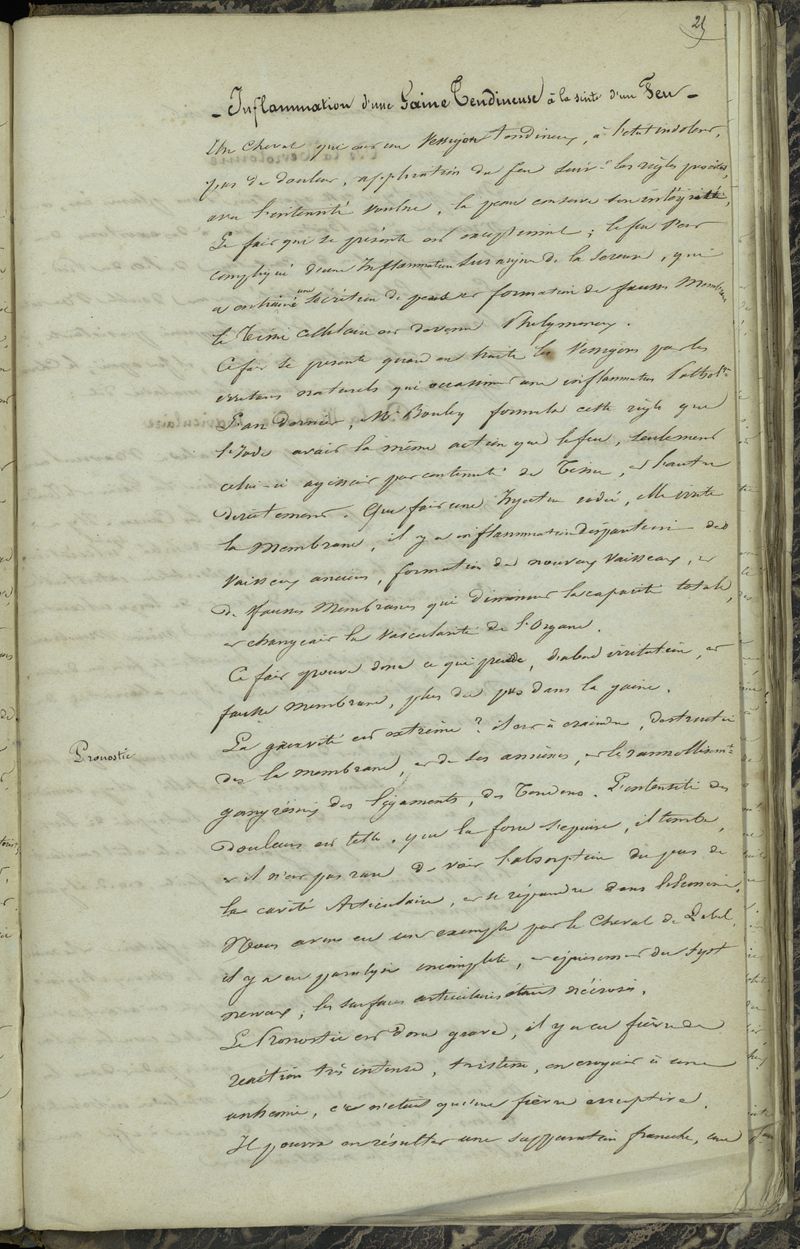 25
- Inflammation d'une Gaine Tendineuse à la suite d'un Feu -
Un Cheval qui eut un Vessigon tendineux, à l'état indolent,
pas de douleur, application du feu suivt les règles posées,
avec l'intensité voulue, la peau conserve son intégrité,
Le fait qui se présente est exceptionnel ; le feu s'est
compliqué d'une Inflammation suraigue de la Sereuse, qui
a entrainé une Sécrétion de pus et formation de fausses Membranes
le Tissu cellulaire est devenu Phelgmoneux.
Ce fait se presente quand on traite les Vessigons par les
irritans naturels qui occasionnent une inflammation
L'an Dernier, Mr Bouley formula cette règle que
l'Iode avait la même action que le feu, seulement
celui-ci agissait par continuité de Tissu, et l'autre
directement. Que fait une Injection iodée, elle irrite
la Membrane, il y a inflammation des
Vaisseaux anciens, formation de nouveaux Vaisseaux, et
de fausses Membranes qui diminuent la capacité totale,
et changeait la Vascularité de l'Organe.
Ce fait prouve donc ce qui precède, d'abord irritation, et
fausse Membrane, plus du pus dans la gaine.
Pronostic
La gravité est extrême ? il est à craindre, destruction
de la membrane, et de ses annexes, et le ramollissmt
gangréneux des ligaments, des Tendons. L'intensité des
douleurs est telle, que la force s'épuise, il tombe,
et il n'est pas rare de voir l'absorption du pus de
la cavité Articulaire, et se répandre dans l'économie.
Nous avons eu un exemple par le Cheval de
il y a eu paralysie incomplète, et épuisement du syst
nerveux, les surfaces articulaires étant nécrosées.
Le Pronostic est donc grave, il y a eu fièvre de
réaction très intense, tristesse, on croyait à une
anhemie, ce n'était qu'une fièvre erruptive.
Il pourra en résulter une suppuration franche, une